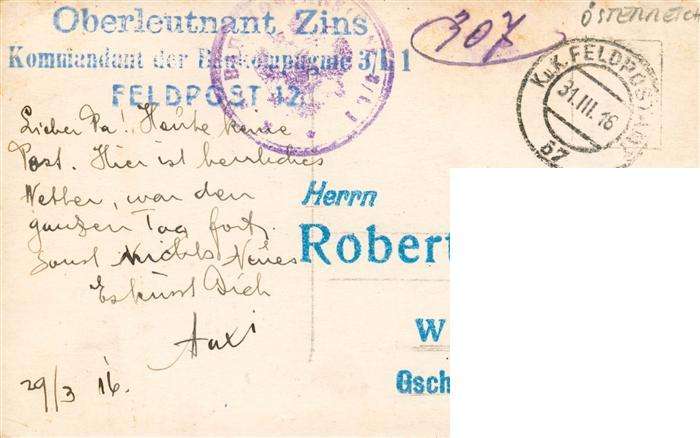 Oberleutnant Zins
Kommandant der Baukompagnie 3/L 1
FELDPOST
307
ÖSTERREICH
K.u.K. FELDPOSTAMT
31.III.16
57
Lieber Pa! Heute keine
Post. Hier ist herrliches
Wetter, war den
ganzen Tag fort,
sonst Nichts Neues
Es küsst Dich
29/3 16.
Herrn
Robert
W
Gsch